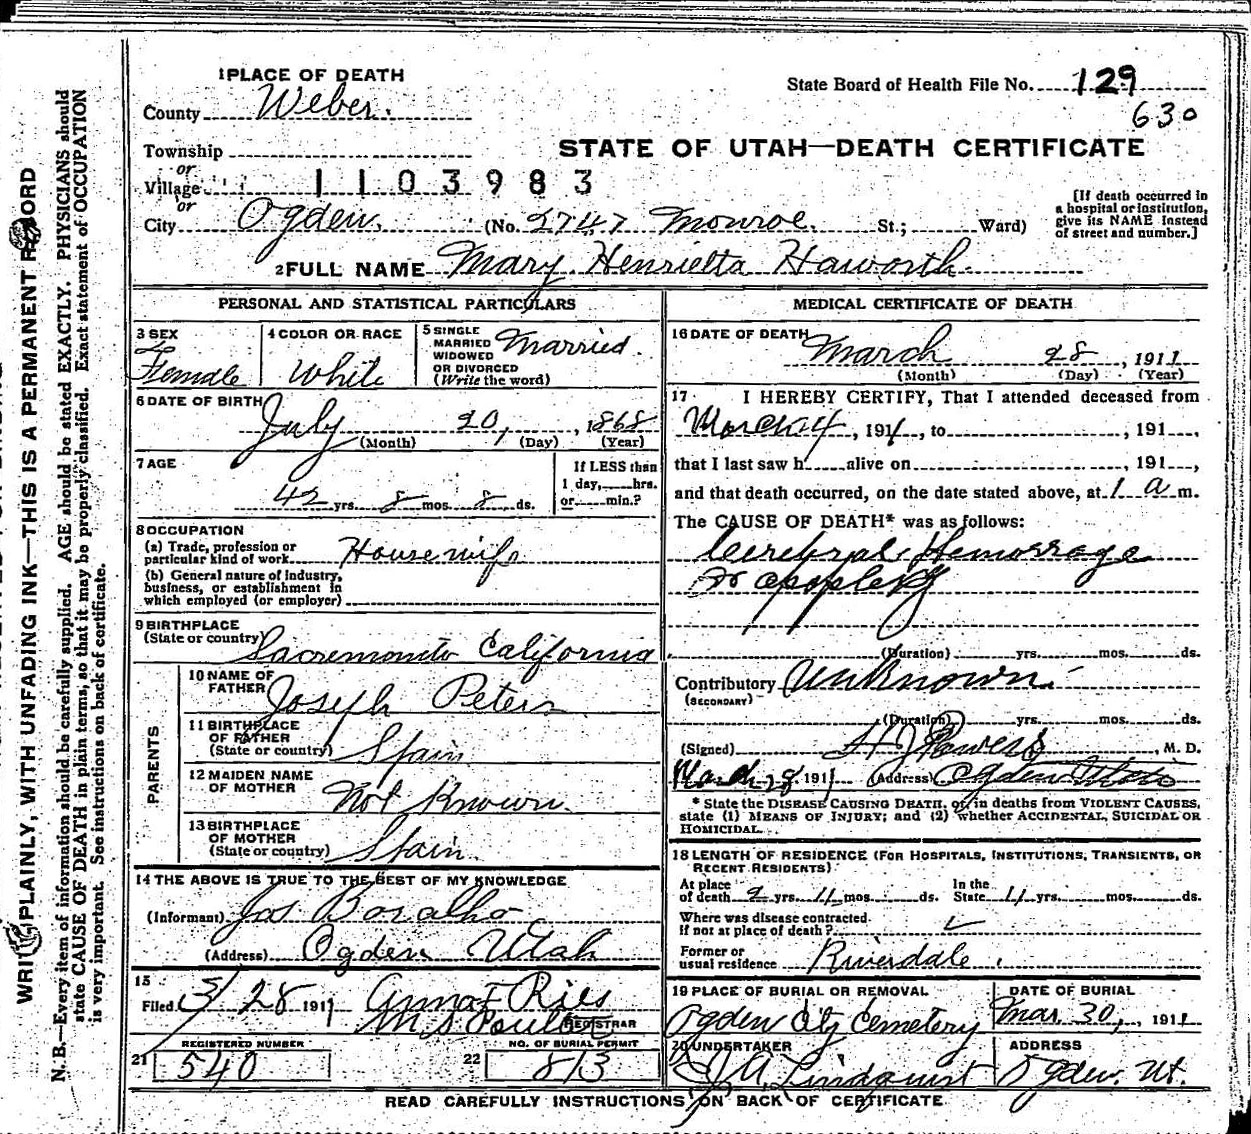 1 PLACE OF DEATH
County Weber.
State Board of Health File No. 129
630
Township
or
Village
1103983
or
STATE OF UTAH—DEATH CERTIFICATE
City Ogden. (No. 2747 Monroe. St.; Ward)
[If death occurred in
a hospital or institution,
give its NAME instead
of street and number.]
2 FULL NAME Mary Henrietta Haworth.
PERSONAL AND STATISTICAL PARTICULARS
3 SEX
Female
4 COLOR OR RACE
White
5 SINGLE
MARRIED
WIDOWED
OR DIVORCED
(Write the word)
Married.
6 DATE OF BIRTH
July 20, 1868
(Month) (Day) (Year)
7 AGE
42 yrs. 8 mos. 8 ds.
If LESS than
1 day, hrs.
or min.?
8 OCCUPATION
(a) Trade, profession or
particular kind of work Housewife
(b) General nature of industry,
business, or establishment in
which employed (or employer)
9 BIRTHPLACE
(State or country)
Sacremonito California
PARENTS
10 NAME OF
FATHER
Joseph Peters
11 BIRTHPLACE
OF FATHER
(State or country)
Spain
12 MAIDEN NAME
OF MOTHER
Not Known.
13 BIRTHPLACE
OF MOTHER
(State or country)
Spain.
14 THE ABOVE IS TRUE TO THE BEST OF MY KNOWLEDGE
(Informant) Jas Boralho
(Address) Ogden Utah
15
Filed 3/28 1911 Anna F Ries
M S
REGISTRAR
REGISTERED NUMBER
21 540
NO. OF BURIAL PERMIT
22 813
MEDICAL CERTIFICATE OF DEATH
16 DATE OF DEATH
March 28, 1911
(Month) (Day) (Year)
17 I HEREBY CERTIFY, That I attended deceased from
, 191 , to , 191 ,
that I last saw h alive on , 191 ,
and that death occurred, on the date stated above, at 1 a m.
The CAUSE OF DEATH* was as follows:
Cerebral Hemorrage
or apoplexy
(Duration) yrs. mos. ds.
Contributory Unknown.
(SECONDARY)
(Duration) yrs. mos. ds.
(Signed) H J Powers, M. D.
March 28 1911 (Address) Ogden Utah
* State the DISEASE CAUSING DEATH, or, in deaths from VIOLENT CAUSES,
state (1) MEANS OF INJURY; and (2) whether ACCIDENTAL, SUICIDAL OR
HOMICIDAL.
18 LENGTH OF RESIDENCE (FOR HOSPITALS, INSTITUTIONS, TRANSIENTS, OR
RECENT RESIDENTS)
At place
of death 2 yrs. 11 mos. ds.
In the
State 11 yrs. mos. ds.
Where was disease contracted
if not at place of death?
Former or
usual residence Riverdale.
19 PLACE OF BURIAL OR REMOVAL
Ogden City Cemetery
DATE OF BURIAL
Mar. 30, 1911
20 UNDERTAKER
J A Lindquist
ADDRESS
Ogden. Ut.
READ CAREFULLY INSTRUCTIONS ON BACK OF CERTIFICATE
PLAINLY, WITH UNFADING INK—THIS IS A PERMANENT
N. B.—Every item of information should be carefully supplied. AGE should be stated EXACTLY. PHYSICIANS should
state CAUSE OF DEATH in plain terms, so that it may be properly classified. Exact statement of OCCUPATION
is very important. See instructions on back of certificate.